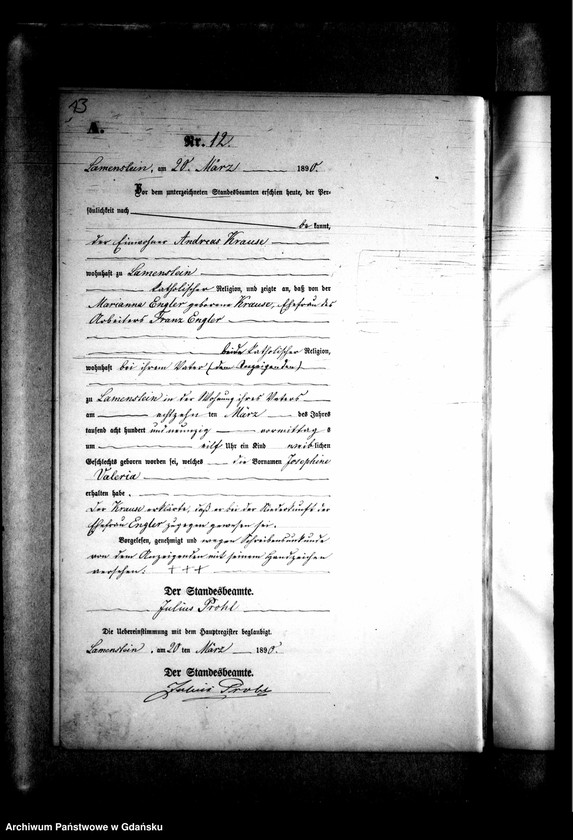 13
A.
Nr. 12.
Lamenstein, am 20. März 1890.
Vor dem unterzeichneten Standesbeamten erschien heute, der Per-
sönlichkeit nach
be kannt,
der Einwohner Andreas Krause
wohnhaft zu Lamenstein
katholischer Religion, und zeigte an, daß von der
Marianna Engler geborene Krause, Ehefrau des
Arbeiters Franz Engler
beide katholischer Religion,
wohnhaft bei ihrem Vater (dem Anzeigenden)
zu Lamenstein in der Wohnung ihres Vaters
am achtzehn ten März des Jahres
tausend acht hundert und neunzig vormittag s
um eilf Uhr ein Kind weiblichen
Geschlechts geboren worden sei, welches die Vornamen Josephine
Valeria
erhalten habe.
Der Krause erklärte, daß er bei der Niederkunft der
Ehefrau Engler zugegen gewesen sei.
Vorgelesen, genehmigt und wegen Schreibensunkunde
von dem Anzeigenden mit seinem Handzeichen
versehen: +++
Der Standesbeamte.
Julius Prohl
Die Uebereinstimmung mit dem Hauptregister beglaubigt.
Lamenstein, am 20 ten März 1890.
Der Standesbeamte.
Julius Prohl
Archiwum Państwowe w Gdańsku